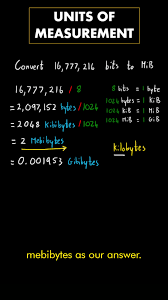 UNITS OF
MEASUREMENT
Convert 16,777,216 bits to MiB
16,777,216 / 8
8 bits = 1 byte
= 2,097,152 bytes /1024
1024 bytes = 1 KiB
= 2048 Kibibytes /1024
1024 KiB = 1 MiB
1024 MiB = 1 GiB
= 2 Mebibytes
kilobytes
= 0.001953 Gibibytes
mebibytes as our answer.